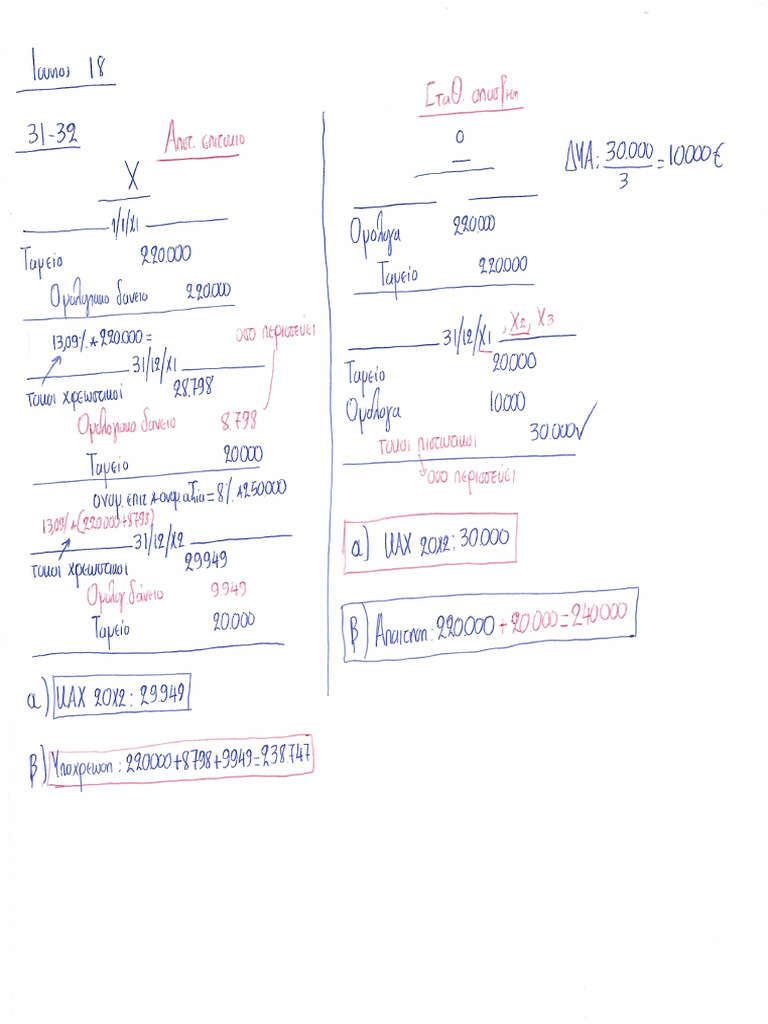 Ιουνιος 18
31-32
Αποτ. επιτοκιο
X
1/1/X1
Ταμείο 220.000
Ομολογιακο δανειο 220.000
13,09% * 220.000 =
οσο περισσεύει
31/12/X1
τοκοι χρεωστικοί 28.798
Ομολογιακο δανειο 8.798
Ταμείο 20000
ονομ. επιτ * ονομ αξία = 8% * 250000
13,09% * (220.000+8798)
31/12/X2
τοκοι χρεωστικοι 29949
Ομολογ δάνειο 9.949
Ταμείο 20.000
α) ΚΑΧ 20X2: 29.949
β) Υποχρεωση: 220.000+8798+9949=238.747
Σταθ. αποσβεση
0
Ομόλογα 220.000
Ταμείο 220.000
31/12/X1, X2, X3
Ταμείο 20.000
Ομόλογα 10.000
τοκοι πιστωτικοι 30.000 ✓
οσο περισσεύει
α) ΚΑΧ 20X2: 30.000
β) Απαιτηση: 220.000 + 20.000 = 240.000
ΔΥΑ: 30.000/3 = 10.000€